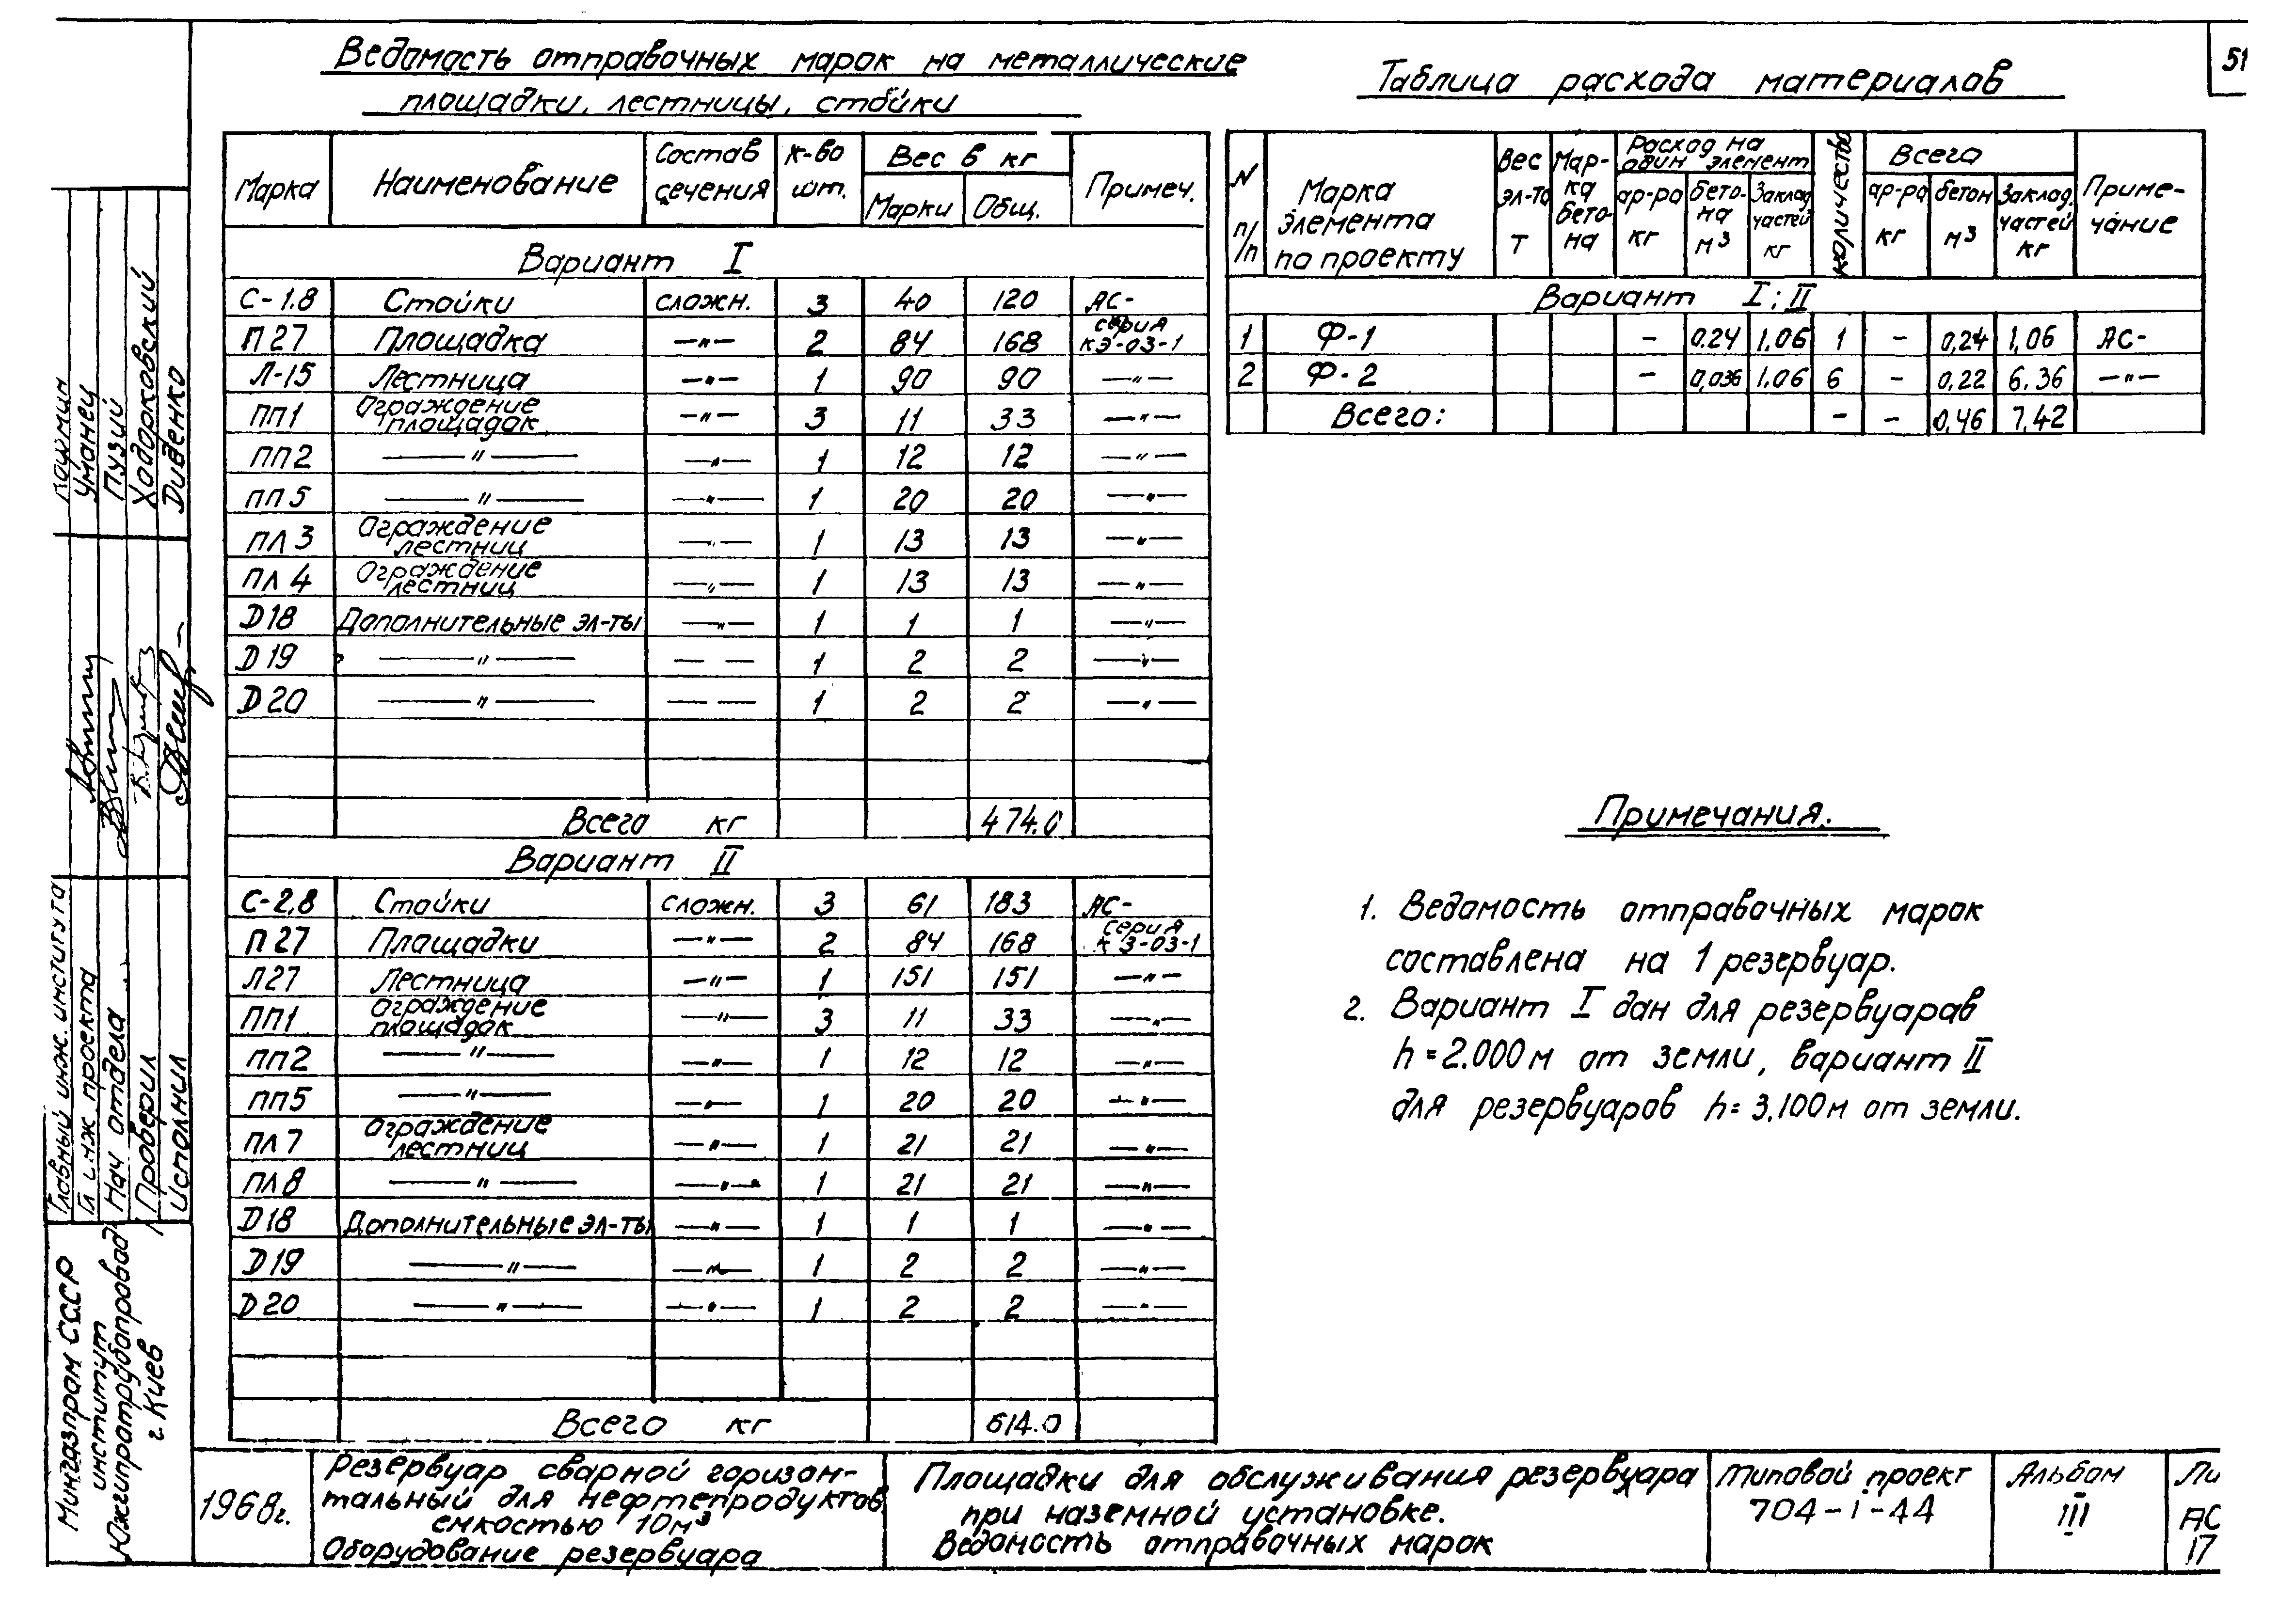 51
Ведомость отправочных марок на металлические
площадки, лестницы, стойки
Марка Наименование Состав сечения К-во шт. Вес в кг Примеч.
Марки Общ.
Вариант I
С-1.8 Стойки сложн. 3 40 120 АС-
П27 Площадка —"— 2 84 168 серия КЭ-03-1
Л-15 Лестница —"— 1 90 90 —"—
ПП1 Ограждение площадок —"— 3 11 33 —"—
ПП2 —"— —"— 1 12 12 —"—
ПП5 —"— —"— 1 20 20 —"—
ПЛ3 Ограждение лестниц —"— 1 13 13 —"—
ПЛ4 Ограждение лестниц —"— 1 13 13 —"—
Д18 Дополнительные эл-ты —"— 1 1 1 —"—
Д19 —"— — — 1 2 2 —"—
Д20 —"— — — 1 2 2 —"—
Всего кг 474.0
Вариант II
С-2,8 Стойки сложн. 3 61 183 АС-
П27 Площадки —"— 2 84 168 серия К Э-03-1
Л27 Лестница —"— 1 151 151 —"—
ПП1 Ограждение площадок —"— 3 11 33 —"—
ПП2 —"— —"— 1 12 12 —"—
ПП5 —"— —"— 1 20 20 —"—
ПЛ7 Ограждение лестниц —"— 1 21 21 —"—
ПЛ8 —"— —"— 1 21 21 —"—
Д18 Дополнительные эл-ты —"— 1 1 1 —"—
Д19 —"— —"— 1 2 2 —"—
Д20 —"— —"— 1 2 2 —"—
Всего кг 614.0
Таблица расхода материалов
N п/п Марка элемента по проекту Вес эл-та Т Марка бетона Расход на один элемент количество Всего Примечание
ар-ра кг бетона м³ Заклад. частей кг ар-ра кг бетон м³ Заклад. частей кг
Вариант I; II
1 Ф-1 – 0.24 1.06 1 – 0,24 1,06 АС-
2 Ф-2 – 0,036 1.06 6 – 0,22 6.36 —"—
Всего: – – 0,46 7,42
Примечания.
1. Ведомость отправочных марок
составлена на 1 резервуар.
2. Вариант I дан для резервуаров
h=2.000м от земли, вариант II
для резервуаров h=3.100м от земли.
Главный инж. института
Гл инж проекта Уманец
Нач отдела Пузий
Проверил Ходорковский
Исполнил Диденко
Мингазпром СССР
институт
Южгипротрубопровод
г. Киев
1968г.
Резервуар сварной горизон-
тальный для нефтепродуктов
емкостью 10м³
Оборудование резервуара
Площадки для обслуживания резервуара
при наземной установке.
Ведомость отправочных марок
Типовой проект
704-1-44
Альбом
III
Ли
АС
17